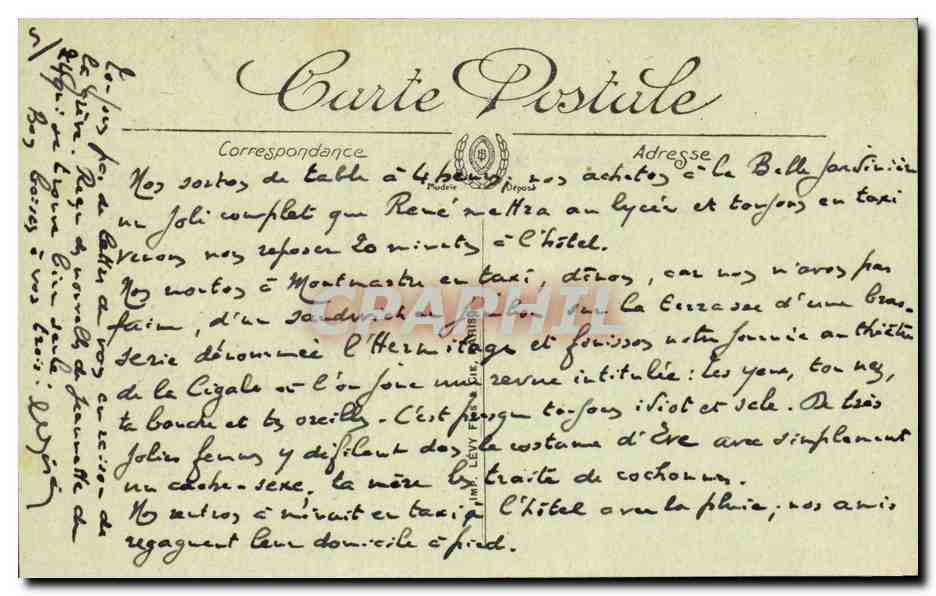 Carte Postale
Correspondance
Adresse
Modèle Déposé
Nos sortos de table à 4 heures, nos achetos à la Belle Jardinière
un joli complet que René mettra au lycée et toujous en taxi
venons nos reposer 20 minutes à l'hôtel.
Nos montos à Montmartre en taxi, dînos, car nos n'avos pas
faim, d'un sandwich au jambon sur la terrasse d'une bras-
serie dénommée l'Hermitage et finissos notre journée au théâtre
de la Cigale où l'on joue une revue intitulée : Tes yeux, ton nez,
ta bouche et tes oreilles. C'est presque toujous idiot et sale. De très
jolies femmes y défilent das le costume d'Ève avec simplement
un cache-sexe, la mère les traite de cochonnes.
Nos rentros à minuit en taxi à l'hôtel avec la pluie, nos amis
regagnent leur domicile à pied.
Toujous pas de lettre de vos en raison de
la grève. Reçu des nouvelles de Jeannette du
24 qui se trouve bien seule.
Bos baisers à vos trois :
5/
IMP. LÉVY FILS & CIE, PARIS
CPAPHIL